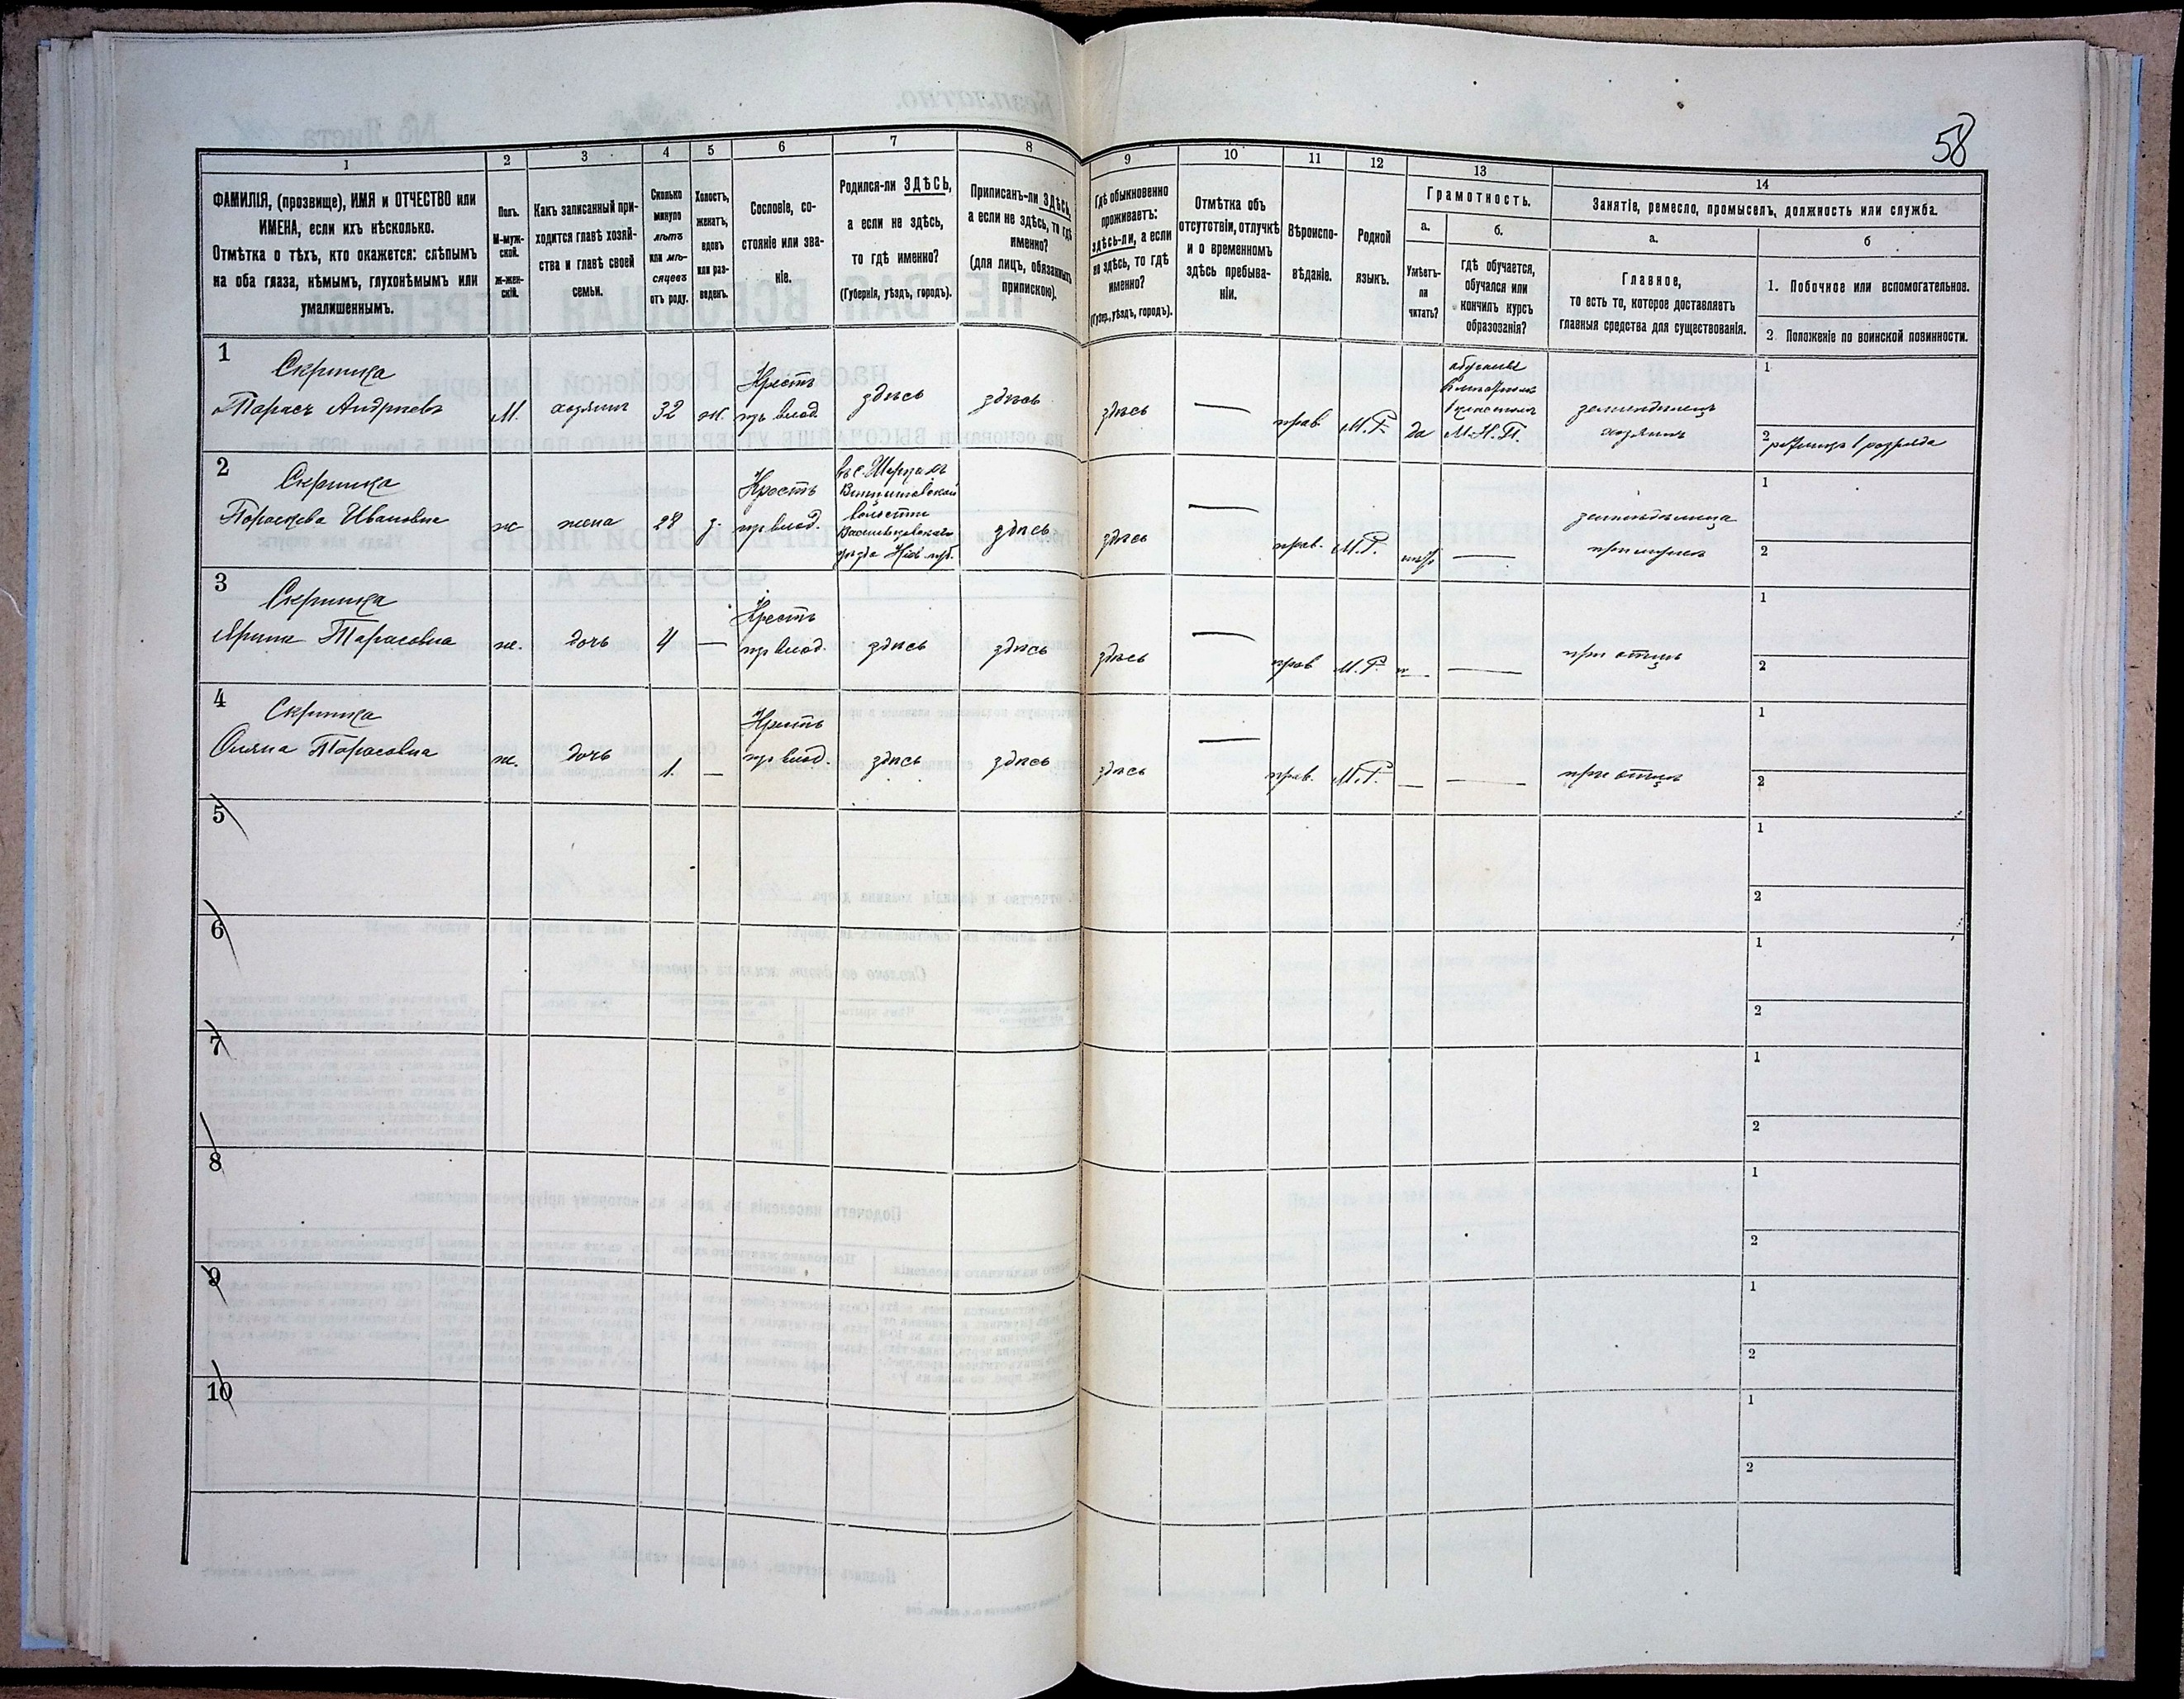 58
1
2
3
4
5
6
7
8
9
10
11
12
13
14
ФАМИЛІЯ, (прозвище), ИМЯ и ОТЧЕСТВО или
ИМЕНА, если ихъ нѣсколько.
Отмѣтка о тѣхъ, кто окажется: слѣпымъ
на оба глаза, нѣмымъ, глухонѣмымъ или
умалишеннымъ.
Полъ.
М-муж-
ской.
ж-жен-
скій.
Какъ записанный при-
ходится главѣ хозяй-
ства и главѣ своей
семьи.
Сколько
минуло
лѣтъ
или мѣ-
сяцевъ
отъ роду.
Холостъ,
женатъ,
вдовъ
или раз-
веденъ.
Сословіе, со-
стояніе или зва-
ніе.
Родился-ли ЗДѢСЬ,
а если не здѣсь,
то гдѣ именно?
(Губернія, уѣздъ, городъ).
Приписанъ-ли ЗДѢСЬ,
а если не здѣсь, то гдѣ
именно?
(для лицъ, обязанныхъ
припискою).
Гдѣ обыкновенно
проживаетъ:
здѣсь-ли, а если
не здѣсь, то гдѣ
именно?
(Губер., уѣздъ, городъ).
Отмѣтка объ
отсутствіи, отлучкѣ
и о временномъ
здѣсь пребыва-
ніи.
Вѣроиспо-
вѣданіе.
Родной
языкъ.
Грамотность.
а.
Умѣетъ-
ли
читать?
б.
гдѣ обучается,
обучался или
кончилъ курсъ
образованія?
Занятіе, ремесло, промыселъ, должность или служба.
а.
Главное,
то есть то, которое доставляетъ
главныя средства для существованія.
б
1. Побочное или вспомогательное.
2. Положеніе по воинской повинности.
1
Скрипка
Тарасъ Андріевъ
М.
хозяинъ
32
ж.
Крестъ
изъ влад.
здѣсь
здѣсь
здѣсь
—
прав.
М.Р.
да
М.Н.П.
земледѣлецъ
хозяинъ
1
2 ратникъ 1 разряда
2
Скрипка
Параскева Ивановна
ж
жена
28
з.
Крестъ
из влад.
волости
Васильковскаго
уѣзда Кіев. губ.
здѣсь
здѣсь
—
прав.
М.Р.
нѣтъ
—
земледѣлица
при мужѣ
1
2
3
Скрипка
Ярина Тарасовна
ж.
дочь
4
—
Крестъ
из влад.
здѣсь
здѣсь
здѣсь
—
прав
М.Р.
—
при отцѣ
1
2
4
Скрипка
Оляна Тарасовна
ж.
дочь
1.
—
Крестъ
из влад.
здѣсь
здѣсь
здѣсь
—
прав.
М.Р.
—
—
при отцѣ
1
2
5
1
2
6
1
2
7
1
2
8
1
2
9
1
2
10
1
2